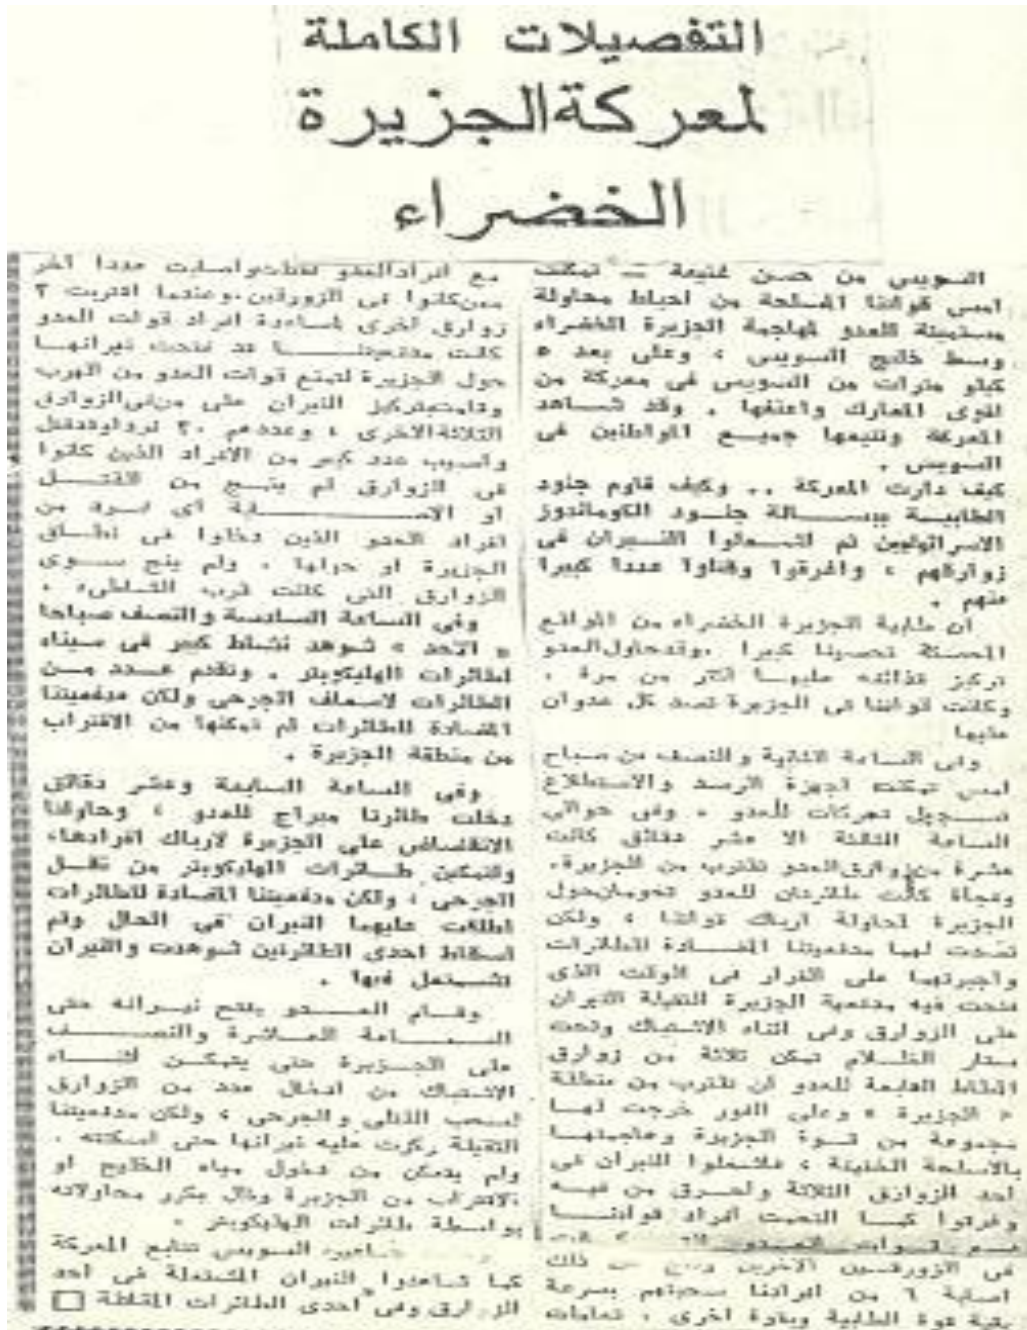 التفصيلات الكاملة
لمعركة الجزيرة
الخضراء
السويس من حسن غنيمة — تمكنت
امس قواتنا المسلحة من احباط محاولة
مستميتة للعدو لمهاجمة الجزيرة الخضراء
وسط خليج السويس ، وعلى بعد ٥
كيلو مترات من السويس فى معركة من
اقوى المعارك واعنفها . وقد شاهد
المعركة وتتبعها جميع المواطنين فى
السويس .
كيف دارت المعركة .. وكيف قاوم جنود
الطابية ببسالة جنود الكوماندوز
الاسرائيليين ثم اشعلوا النيران فى
زوارقهم ، واغرقوا وقتلوا عددا كبيرا
منهم .
ان طابية الجزيرة الخضراء من المواقع
المحصنة تحصينا كبيرا . وقد حاول العدو
تركيز قذائفه عليها اكثر من مرة ،
وكانت قواتنا فى الجزيرة تصد كل عدوان
عليها
وفى الساعة الثانية والنصف من صباح
امس تمكنت اجهزة الرصد والاستطلاع
تسجيل تحركات للعدو . وفى حوالى
الساعة الثالثة الا عشر دقائق كانت
عشرة من زوارق العدو تقترب من الجزيرة.
وفجأة كانت طائرتان للعدو تحومان حول
الجزيرة لمحاولة ارباك قواتنا ، ولكن
تصدت لهما مدفعيتنا المضادة للطائرات
واجبرتهما على الفرار فى الوقت الذى
فتحت فيه مدفعية الجزيرة الثقيلة النيران
على الزوارق وفى اثناء الاشتباك وتحت
ستار الظلام تمكن ثلاثة من زوارق
المطاط التابعة للعدو ان تقترب من منطقة
« الجزيرة » وعلى الفور خرجت لها
مجموعة من قوة الجزيرة وهاجمتها
بالاسلحة الخفيفة ، فاشعلوا النيران فى
احد الزوارق الثلاثة واحرق من فيه
وغرقوا كما التحمت افراد قواتنا
مع قوات العدو
فى الزورقين الاخرين ونتج عن ذلك
اصابة ٦ من افرادنا سحبتهم بسرعة
بقية قوة الطابية وبقوة اخرى ، تعاملت
مع افراد العدو فقتلت واصابت عددا آخر
ممن كانوا فى الزورقين . وعندما اقتربت ٣
زوارق اخرى لمساعدة افراد قوات العدو
كانت مدفعيتنا قد فتحت نيرانها
حول الجزيرة لتمنع قوات العدو من الهرب
وقامت بتركيز النيران على من فى الزوارق
الثلاثة الاخرى ، وعددهم ٣٠ فردا وقد قتل
واصيب عدد كبير من الافراد الذين كانوا
فى الزوارق لم ينج من القتل
او الاصابة اى فرد من
افراد العدو الذين دخلوا فى نطاق
الجزيرة او حولها . ولم ينج سوى
الزوارق التى كانت قرب الشاطىء .
وفى الساعة السادسة والنصف صباحا
« الاحد » شوهد نشاط كبير فى سيناء
لطائرات الهليكوبتر . وتقدم عدد من
الطائرات لاسعاف الجرحى ولكن مدفعيتنا
المضادة للطائرات لم تمكنها من الاقتراب
من منطقة الجزيرة .
وفى الساعة السابعة وعشر دقائق
دخلت طائرتا ميراج للعدو ، وحاولتا
الانقضاض على الجزيرة لارباك افرادها،
ولتمكين طائرات الهليكوبتر من نقل
الجرحى ، ولكن مدفعيتنا المضادة للطائرات
اطلقت عليهما النيران فى الحال وتم
اسقاط احدى الطائرتين شوهدت والنيران
تشتعل فيها .
وقام العدو بفتح نيرانه حتى
الساعة العاشرة والنصف
على الجزيرة حتى يتمكن اثناء
الاشتباك من ادخال عدد من الزوارق
لسحب القتلى والجرحى ، ولكن مدفعيتنا
الثقيلة ركزت عليه نيرانها حتى اسكتته .
ولم يتمكن من دخول مياه الخليج او
الاقتراب من الجزيرة وظل يكرر محاولاته
بواسطة طائرات الهليكوبتر .
جماهير السويس تتابع المعركة
كما شاهدوا النيران المشتعلة فى احد
الزوارق وفى احدى الطائرات المقاتلة